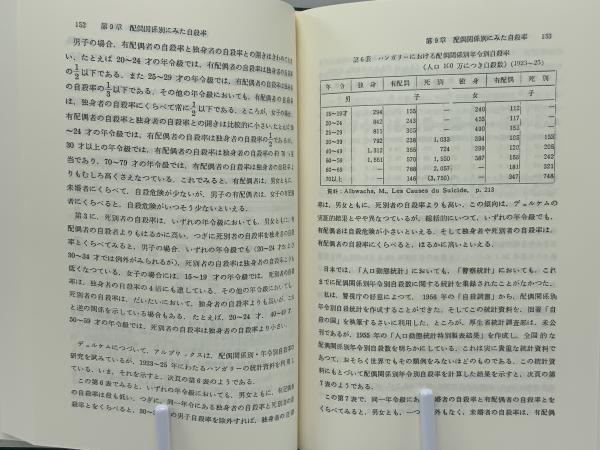 152　第9章　配偶関係別にみた自殺率
男子の場合，有配偶者の自殺率と独身者の自殺率との開きは
い，たとえば 20〜24 才の年令級では，有配偶者の自殺率は独身者の自殺率
の1/2以下である。また 25〜29 才の年令級では，有配偶者の自殺率は独身者
の自殺率の1/3以下である。その他の年令級においても，有配偶者の自殺率
は，独身者の自殺率にくらべて常に1/2以下である。ところが，女子の場合，
有配偶者の自殺率と独身者の自殺率との開きは比較的に小さい。たとえば 20
〜24 才の年令級では，有配偶者の自殺率は独身者の自殺率の1/2であるが，
30 才以上の年令級では，有配偶者の自殺率は独身者の自殺率の
当であり，70〜79 才の年令級では，有配偶者の自殺率は独身者の自殺率よ
りもむしろ高くさえなつている。これでみると，有配偶者は，男女ともに，
未婚者にくらべて，自殺危険が少ないが，男子の有配偶者は，女子の有配偶
者にくらべると，自殺危険がいつそう少ないといえる。
第3に，死別者の自殺率は，いずれの年令級においても，男女ともに，有
配偶者の自殺率よりもはるかに高い。つぎに死別者の自殺率を独身者の自殺
率とくらべてみると，男子の場合，いずれの年令級でも (20〜24 才および
30〜34 才では例外がみられるが)，死別者の自殺率は独身者の自殺率よりも
低くなつている。女子の場合には，15〜19 才の年令級では，死別者の自殺
率は，独身者の自殺率の 4 倍にも達している。その他の年令級においても，
死別者の自殺率は，だいたいにおいて，独身者の自殺率よりも高いが，これ
と逆の関係を示している場合もある。たとえば，20〜24 才，40〜49 才，
50〜59 才の年令級では，死別者の自殺率は独身者の自殺率より小さい。
デュルケムにつづいて，アルブワックスは，配偶関係別・年令別自殺率の
研究を試みているが，1923〜25 年にわたるハンガリーの統計資料を利用し
ている。いま，それを示すと，次頁の第6表のようである。
この第6表でみると，いずれの年令級においても，男女ともに，有配偶者
の自殺率は最も低い。つぎに，同一年令にある独身者の自殺率と死別者の自
殺率とをくらべると，30〜 の男子自殺率を除外すれば，独身者の自殺
第9章　配偶関係別にみた自殺率　153
第6表　ハンガリーにおける配偶関係別年令別自殺率
(人口 100 万につき自殺数) (1923〜25)
年令　独身　有配偶　死別　独身　有配偶　死別
男　子　女　子
15〜19才　294　155　―　240　112　―
20〜24　842　243　―　455　117　―
25〜29　811　305　―　490　152　―
30〜39　792　238　1,033　394　103　153
40〜49　1,312　355　724　299　120　205
50〜59　1,551　570　1,550　587　158　242
60〜69　　788　2,057　　181　321
70以上　―　146　(3,750)　―　247　748
資料：Albwachs, M., Les Causes du Suicide, p. 213
率は，男女ともに，死別者の自殺率よりも高い。この傾向は，デュルケムの
実証的結果とやや異なつているが，総括的にいつて，いずれの年令級でも，
有配偶者は自殺危険が小さいといえる。そして独身者や死別者の自殺率は，
有配偶者の自殺率にくらべると，はるかに高いといえる。
日本では，「人口動態統計」においても，「警察統計」においても，これ
まで配偶関係別年令別自殺数に関する統計を集録されたことがなかつた。
私は，警視庁の好意によつて，1956 年の「自殺調書」から，配偶関係別
年令別自殺統計を作成することができた。そしてこの統計資料を，拙著「自
殺の国」を執筆するさいに利用した。ところが，厚生省統計調査部は，未公
刊であるが，1955 年の「人口動態統計特別製表結果」を作成し，全国的な
配偶関係別年令別自殺数を明らかにしている。これは実に貴重な統計資料で
あつて，おそらく世界でもその類例をみないほどのものである。この統計資
料にもとづいて配偶関係別年令別自殺率を計算した結果を示すと，次頁の第
7表のようである。
この第7表で，同一年令級にある 婚者の自殺率と有配偶者の自殺率とを
くらべてみると，男女とも，一つ 外もなく，未婚者の自殺率は，有配偶